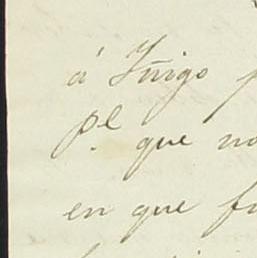 á Yñigo
pl. que no
en que fu